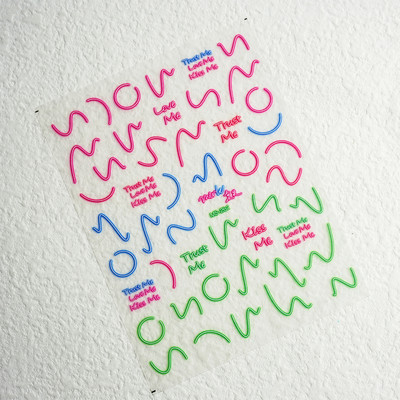 Trust Me
Love Me
Kiss Me
Love
Me
Trust
Me
Trust Me
Love Me
Kiss Me
Kiss
Me
Trust Me
Love Me
Kiss Me
Trust
Me
Trust Me
Love Me
Kiss Me